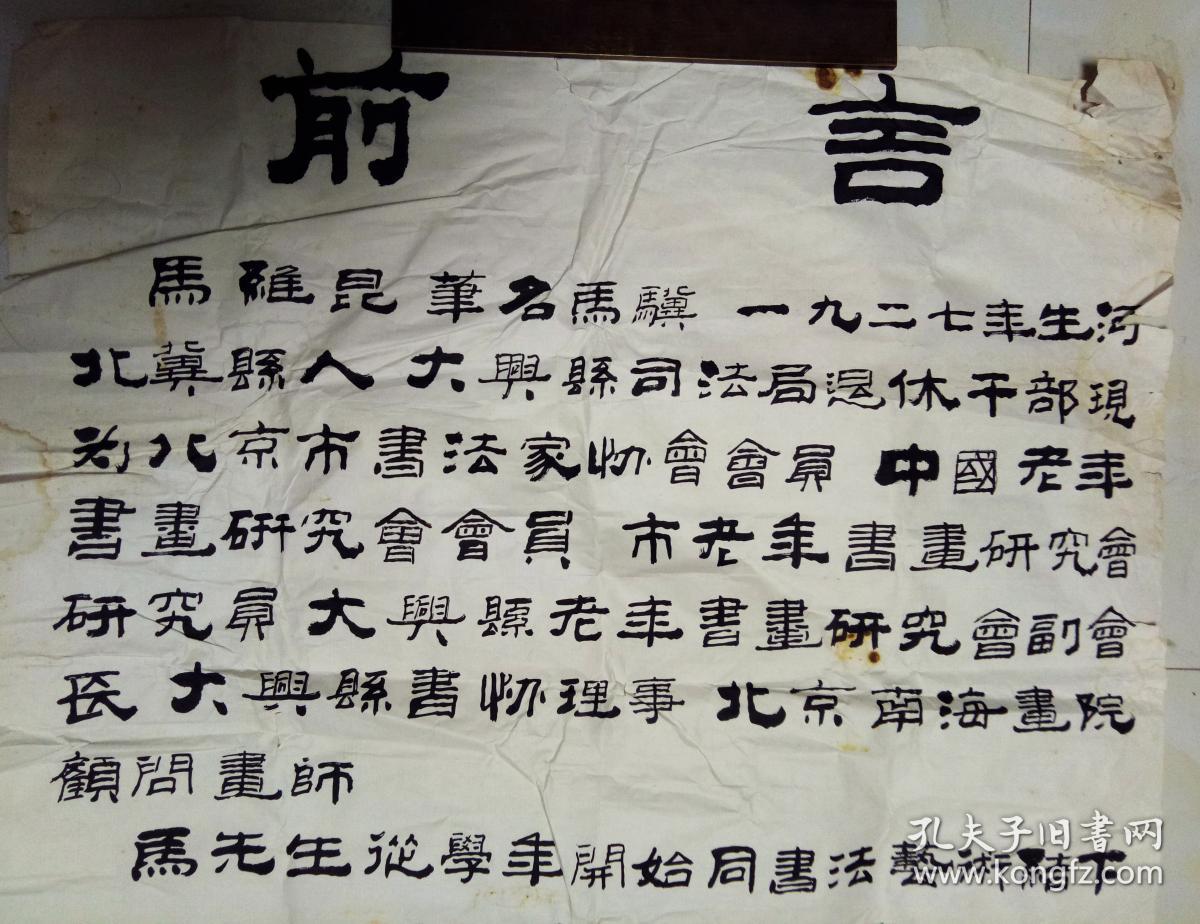 前言
馬維昆 筆名馬驥 一九二七年生河
北冀縣人 大興縣司法局退休干部現
為北京市書法家协會會員 中國老年
書畫研究會會員 市老年書畫研究會
研究員 大興縣老年書畫研究會副會
長 大興縣書协理事 北京南海畫院
顧問畫師
馬先生從學年開始同書法藝術結下
孔夫子旧書网
www.kongfz.com